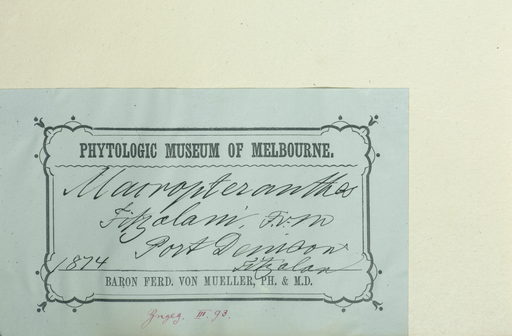 PHYTOLOGIC MUSEUM OF MELBOURNE.
Macropteranthes
Fitzalani, F.v.M
Port Denison
1874 Fitzalan
BARON FERD. VON MUELLER, PH. & M.D.
III. 93.